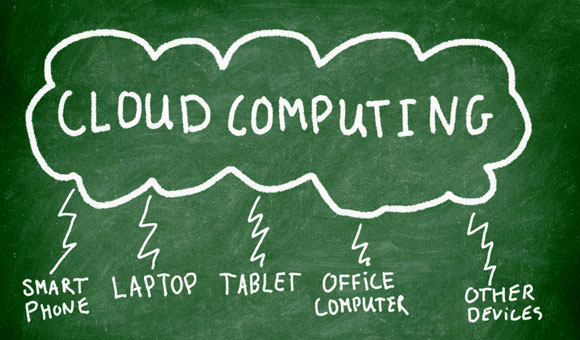 CLOUD COMPUTING
SMART
PHONE
LAPTOP
TABLET
OFFICE
COMPUTER
OTHER
DEVICES